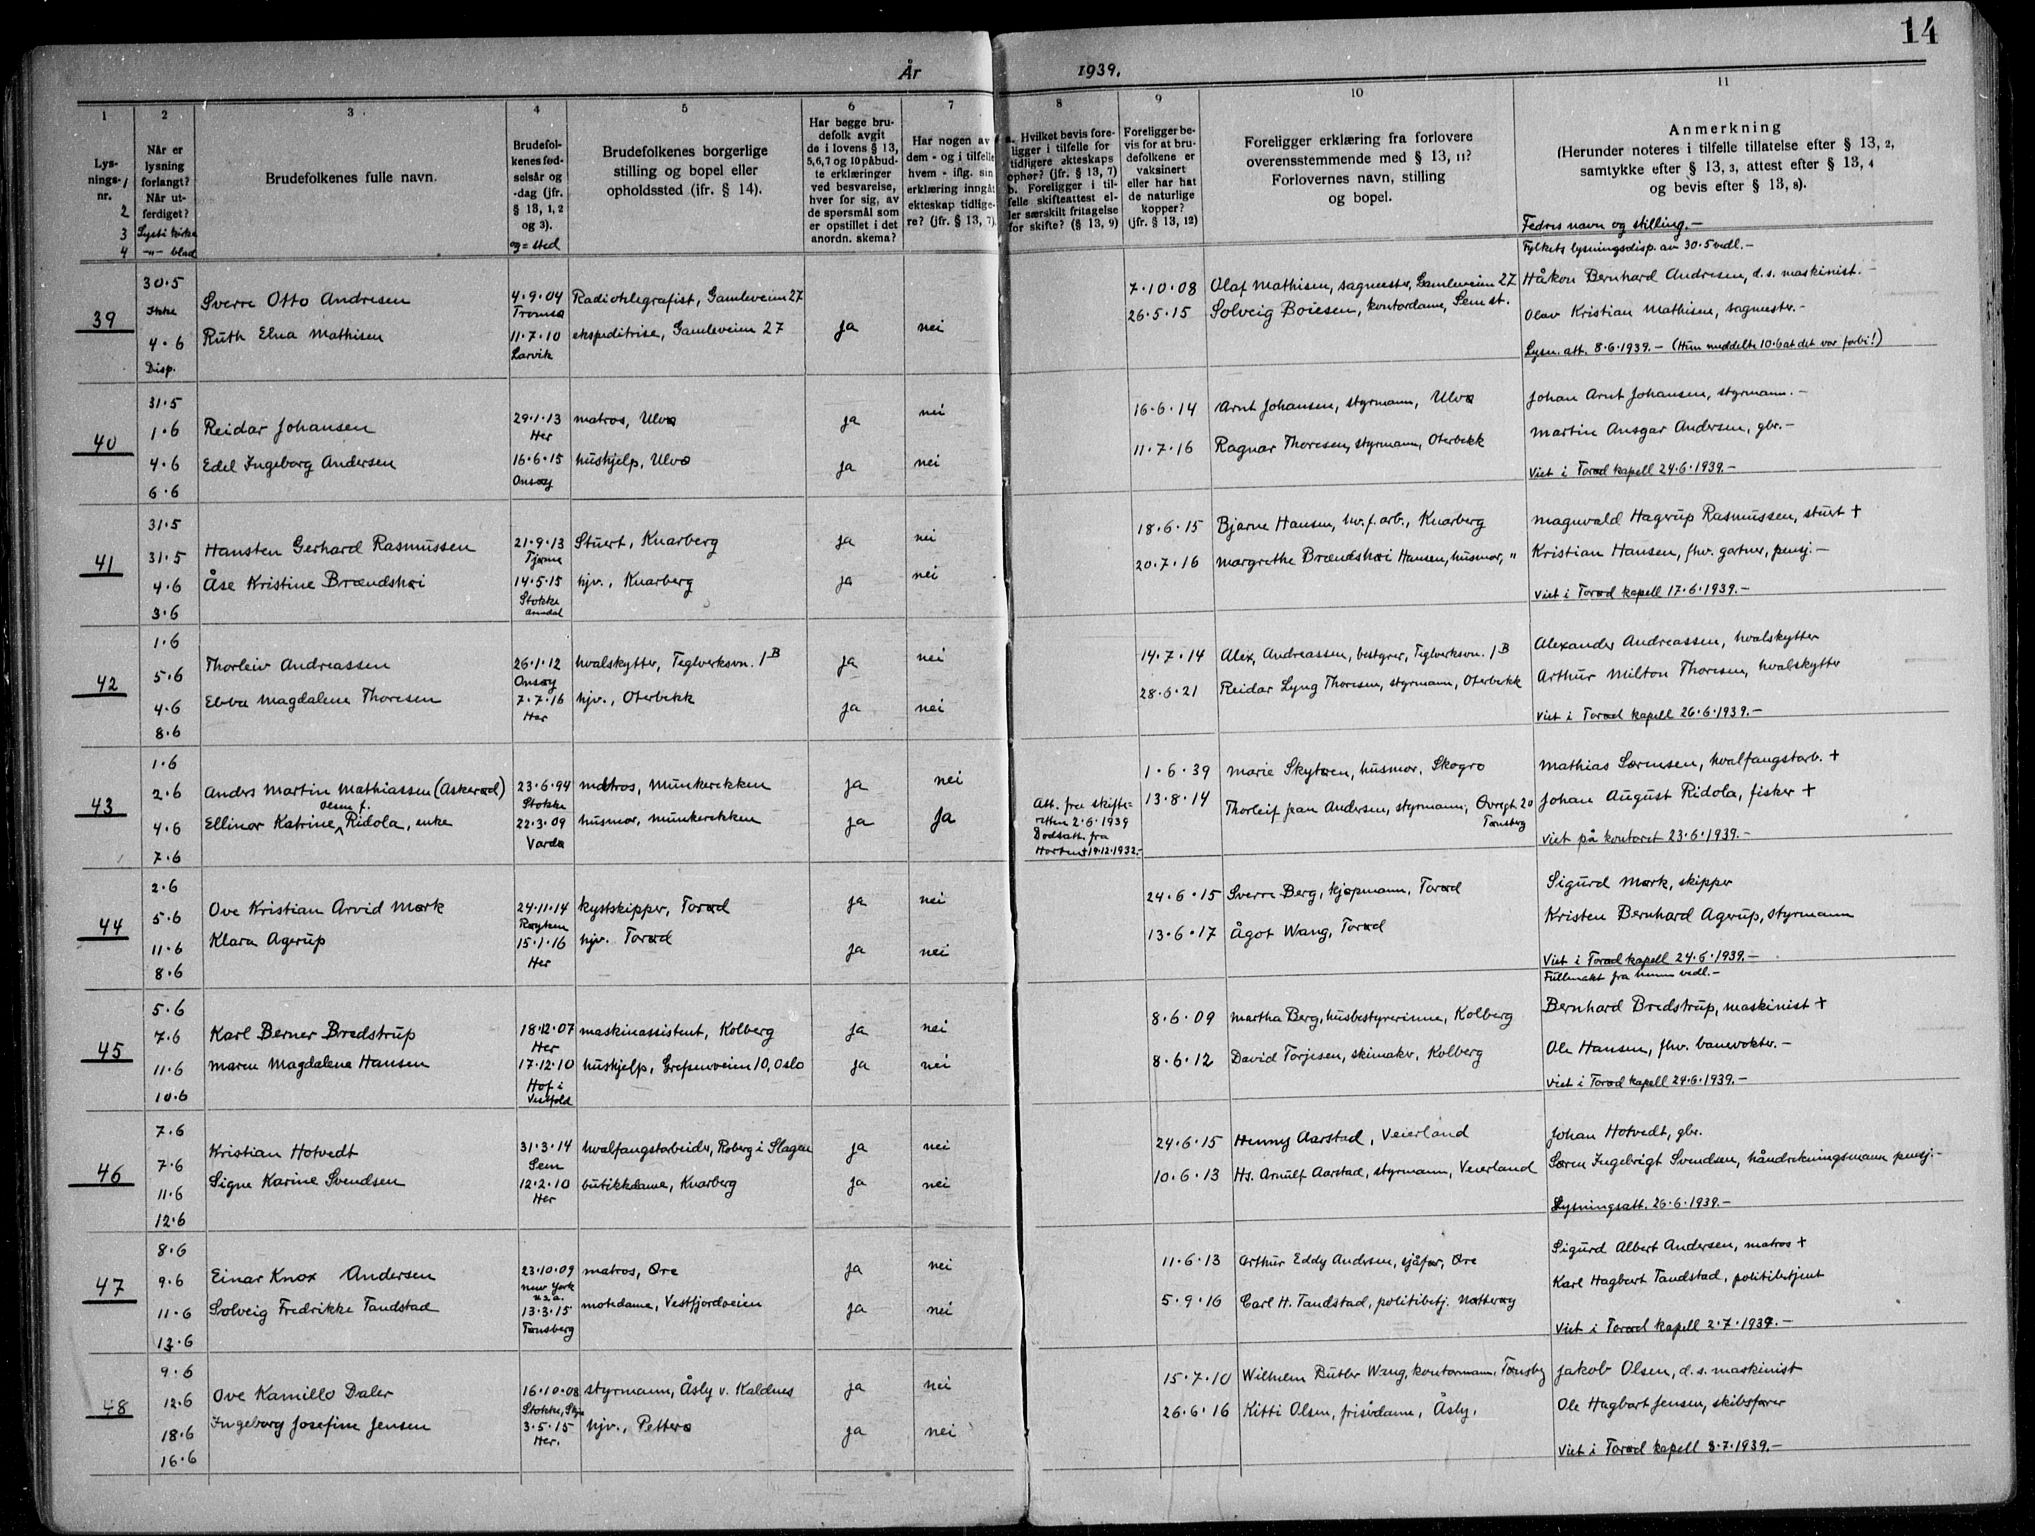 14
År 1939.
1 2 3 4 5 6 7 8 9 10 11
Lys-
nings-
nr.
1
2
3
4
Når er
lysning
forlangt?
Når ut-
ferdiget?
Lyst i kirke
-"- blad
Brudefolkenes fulle navn.
Brudefol-
kenes fød-
selsår og
-dag (jfr.
§ 13, 1, 2
og 3).
og = sted
Brudefolkenes borgerlige
stilling og bopel eller
opholdssted (jfr. § 14).
Har begge bru-
defolk avgit
de i lovens § 13,
5,6,7 og 10 påbud-
te erklæringer
ved besvarelse,
hver for sig, av
de spørsmål som
er opstillet i det
anordn. skema?
Har nogen av
dem - og i tilfelle
hvem - iflg. sin
erklæring inngått
ekteskap tidlige-
re? (jfr. § 13, 7).
a. Hvilket bevis fore-
ligger i tilfelle for
tidligere ekteskaps
ophør? (jfr. § 13, 7)
b. Foreligger i til-
felle skifteattest el-
ler særskilt fritagelse
for skifte? (§ 13, 9)
Foreligger be-
vis for at bru-
defolkene er
vaksinert
eller har hat
de naturlige
kopper?
(jfr. § 13, 12)
Foreligger erklæring fra forlovere
overensstemmende med § 13, 11?
Forlovernes navn, stilling
og bopel.
Anmerkning
(Herunder noteres i tilfelle tillatelse efter § 13, 2,
samtykke efter § 13, 3, attest efter § 13, 4
og bevis efter § 13, 8).
Fedres navn og stilling.-
39
30.5
Ikke
4.6
Disp.
Sverre Otto Andresen
Ruth Elna Mathisen
4.9.04
Tromsø
11.7.10
Larvik
Radiotelegrafist, Gamleveien 27
ekspeditrise, Gamleveien 27
ja nei
7.10.08 Olaf Mathisen, sagmester, Gamleveien 27
26.5.15 Solveig Boiesen, kontordame, Sem st.
Fylkets lysningsdisp. av 30.5 vedl.-
Håkon Bernhard Andresen, d.s. maskinist.-
Olav Kristian Mathisen, sagmester.-
Lysn.att. 8.6.1939.- (Hun meddelte 10.6 at det var forbi!)
40
31.5
1.6
4.6
6.6
Reidar Johansen
Edel Ingeborg Andersen
29.1.13
Her
16.6.15
Onsøy
matros, Ulvø
hushjelp, Ulvø
ja nei
ja nei
16.6.14 Arnt Johansen, styrmann, Ulvø
11.7.16 Ragnar Thoresen, styrmann, Oterbekk
Johan Arnt Johansen, styrmann.-
Martin Ansgar Andersen, gbr.-
Viet i Torød kapell 24.6.1939.-
41
31.5
31.5
4.6
3.6
Hansten Gerhard Rasmussen
Åse Kristine Brændshøi
21.9.13
Tjøme
14.5.15
Stokke
Arendal
Stuert, Knarberg
hjv., Knarberg
ja nei
ja nei
18.6.15 Bjarne Hansen, hv.f.arb., Knarberg
20.7.16 Margrethe Brændshøi Hansen, husmor, "
Magnvald Hagerup Rasmussen, stuert +
Kristian Hansen, fhv. gartner, pensj.-
Viet i Torød kapell 17.6.1939.-
42
1.6
5.6
4.6
8.6
Thorleiv Andreassen
Ebba Magdalene Thoresen
26.1.12
Onsøy
7.7.16
Her
hvalskytter, Teglverksvn. 1B
hjv., Oterbekk
ja nei
ja nei
14.7.14 Alex. Andreassen, bestyrer, Teglverksvn. 1B
28.6.21 Reidar Lyng Thoresen, styrmann, Oterbekk
Alexander Andreassen, hvalskytter
Arthur Milton Thoresen, hvalskytter
Viet i Torød kapell 26.6.1939.-
43
1.6
2.6
4.6
7.6
Anders Martin Mathiassen (Askerød)
Ellinor Katrine Ridola, enke
23.6.94
Stokke
22.3.09
Vardø
matros, Munkerekken
husmor, Munkerekken
ja nei
ja ja
Att. fra skifte-
retten 2.6.1939
Dødsatt. fra
Horten + 19.12.1932.-
1.6.39 Marie Skytøen, husmor, Skogro
13.8.14 Thorleif Jean Andersen, styrmann, Øvregt 20
Tønsberg
Mathias Sørensen, hvalfangstarb. +
Johan August Ridola, fisker +
Viet på kontoret 23.6.1939.-
44
2.6
5.6
11.6
8.6
Ove Kristian Arvid Mørk
Klara Agerup
24.11.14
Røyken
15.1.16
Her
kystskipper, Torød
hjv. Torød
ja nei
ja nei
24.6.15 Sverre Berg, kjøpmann, Torød
13.6.17 Ågot Wang, Torød
Sigurd Mørk, skipper
Kristen Bernhard Agerup, styrmann
Viet i Torød kapell 24.6.1939.-
45
5.6
7.6
11.6
10.6
Karl Berner Bredstrup
Maren Magdalene Hansen
18.12.07
Her
17.12.10
Hof i
Vestfold
maskinassistent, Kolberg
hushjelp, Grefsenveien 10, Oslo
ja nei
ja nei
8.6.09 Martha Berg, husbestyrerinne, Kolberg
8.6.12 David Torjesen, skimaker, Kolberg
Fullmakt fra henne vedl.-
Bernhard Bredstrup, maskinist +
Ole Hansen, fhv. banevokter.-
Viet i Torød kapell 24.6.1939.-
46
7.6
7.6
11.6
12.6
Kristian Hotvedt
Signe Karine Svendsen
31.3.14
Sem
12.2.10
Her
hvalfangstarbeider, Roberg i Slagen
butikkdame, Knarberg
ja nei
ja nei
24.6.15 Henny Aarstad, Veierland
10.6.13 Hs. Arnulf Aarstad, styrmann, Veierland
Johan Hotvedt, gbr.
Søren Ingebrigt Svendsen, håndrekningsmann pensj.-
Lysningsatt. 26.6.1939.-
47
8.6
9.6
11.6
13.6
Einar Knox Andersen
Solveig Fredrikke Tandstad
23.10.09
New York
U.S.A.
13.3.15
Tønsberg
matros, Øre
motedame, Vestfjordveien
ja nei
ja nei
11.6.13 Arthur Eddy Andersen, sjåfør, Øre
5.9.16 Carl H. Tandstad, politibetj. Nøtterøy
Sigurd Albert Andersen, matros +
Karl Hagbart Tandstad, politibetjent
Viet i Torød kapell 2.7.1939.-
48
9.6
12.6
18.6
16.6
Ove Kamillo Daler
Ingeborg Josefine Jensen
16.10.08
Stokke,
3.5.15
Her.
styrmann, Åsly v. Kaldnes
hjv., Petterø
ja nei
ja nei
15.7.10 Wilhelm Butler Wang, kontormann, Tønsbg
26.6.16 Kitti Olsen, frisørdame, Åsly.
Jakob Olsen, d.s. maskinist
Ole Hagbart Jensen, skibsfører
Viet i Torød kapell 8.7.1939.-